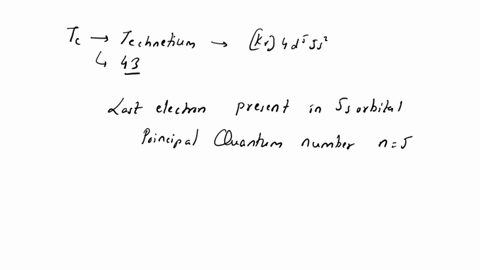 Tc → Technetium → [Kr] 4d⁵ 5s²
↳ 43
Last electron present in 5s orbital
Poincipal Quantum number n=5